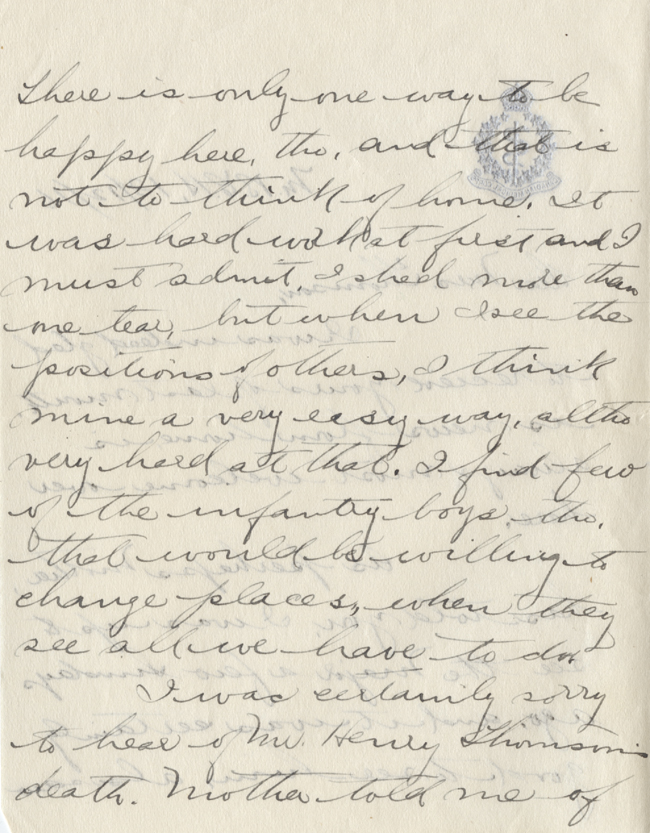 There is only one way to be
happy here, tho, and that is
not to think of home. It
was hard work at first and I
must admit, I shed more than
one tear, but when I see the
positions of others, I think
mine a very easy way, altho
very hard at that. I find few
of the infantry boys, tho,
that would be willing to
change places, when they
see all we have to do.
I was certainly sorry
to hear of Mr. Henry Thomson's
death. Mother told me of